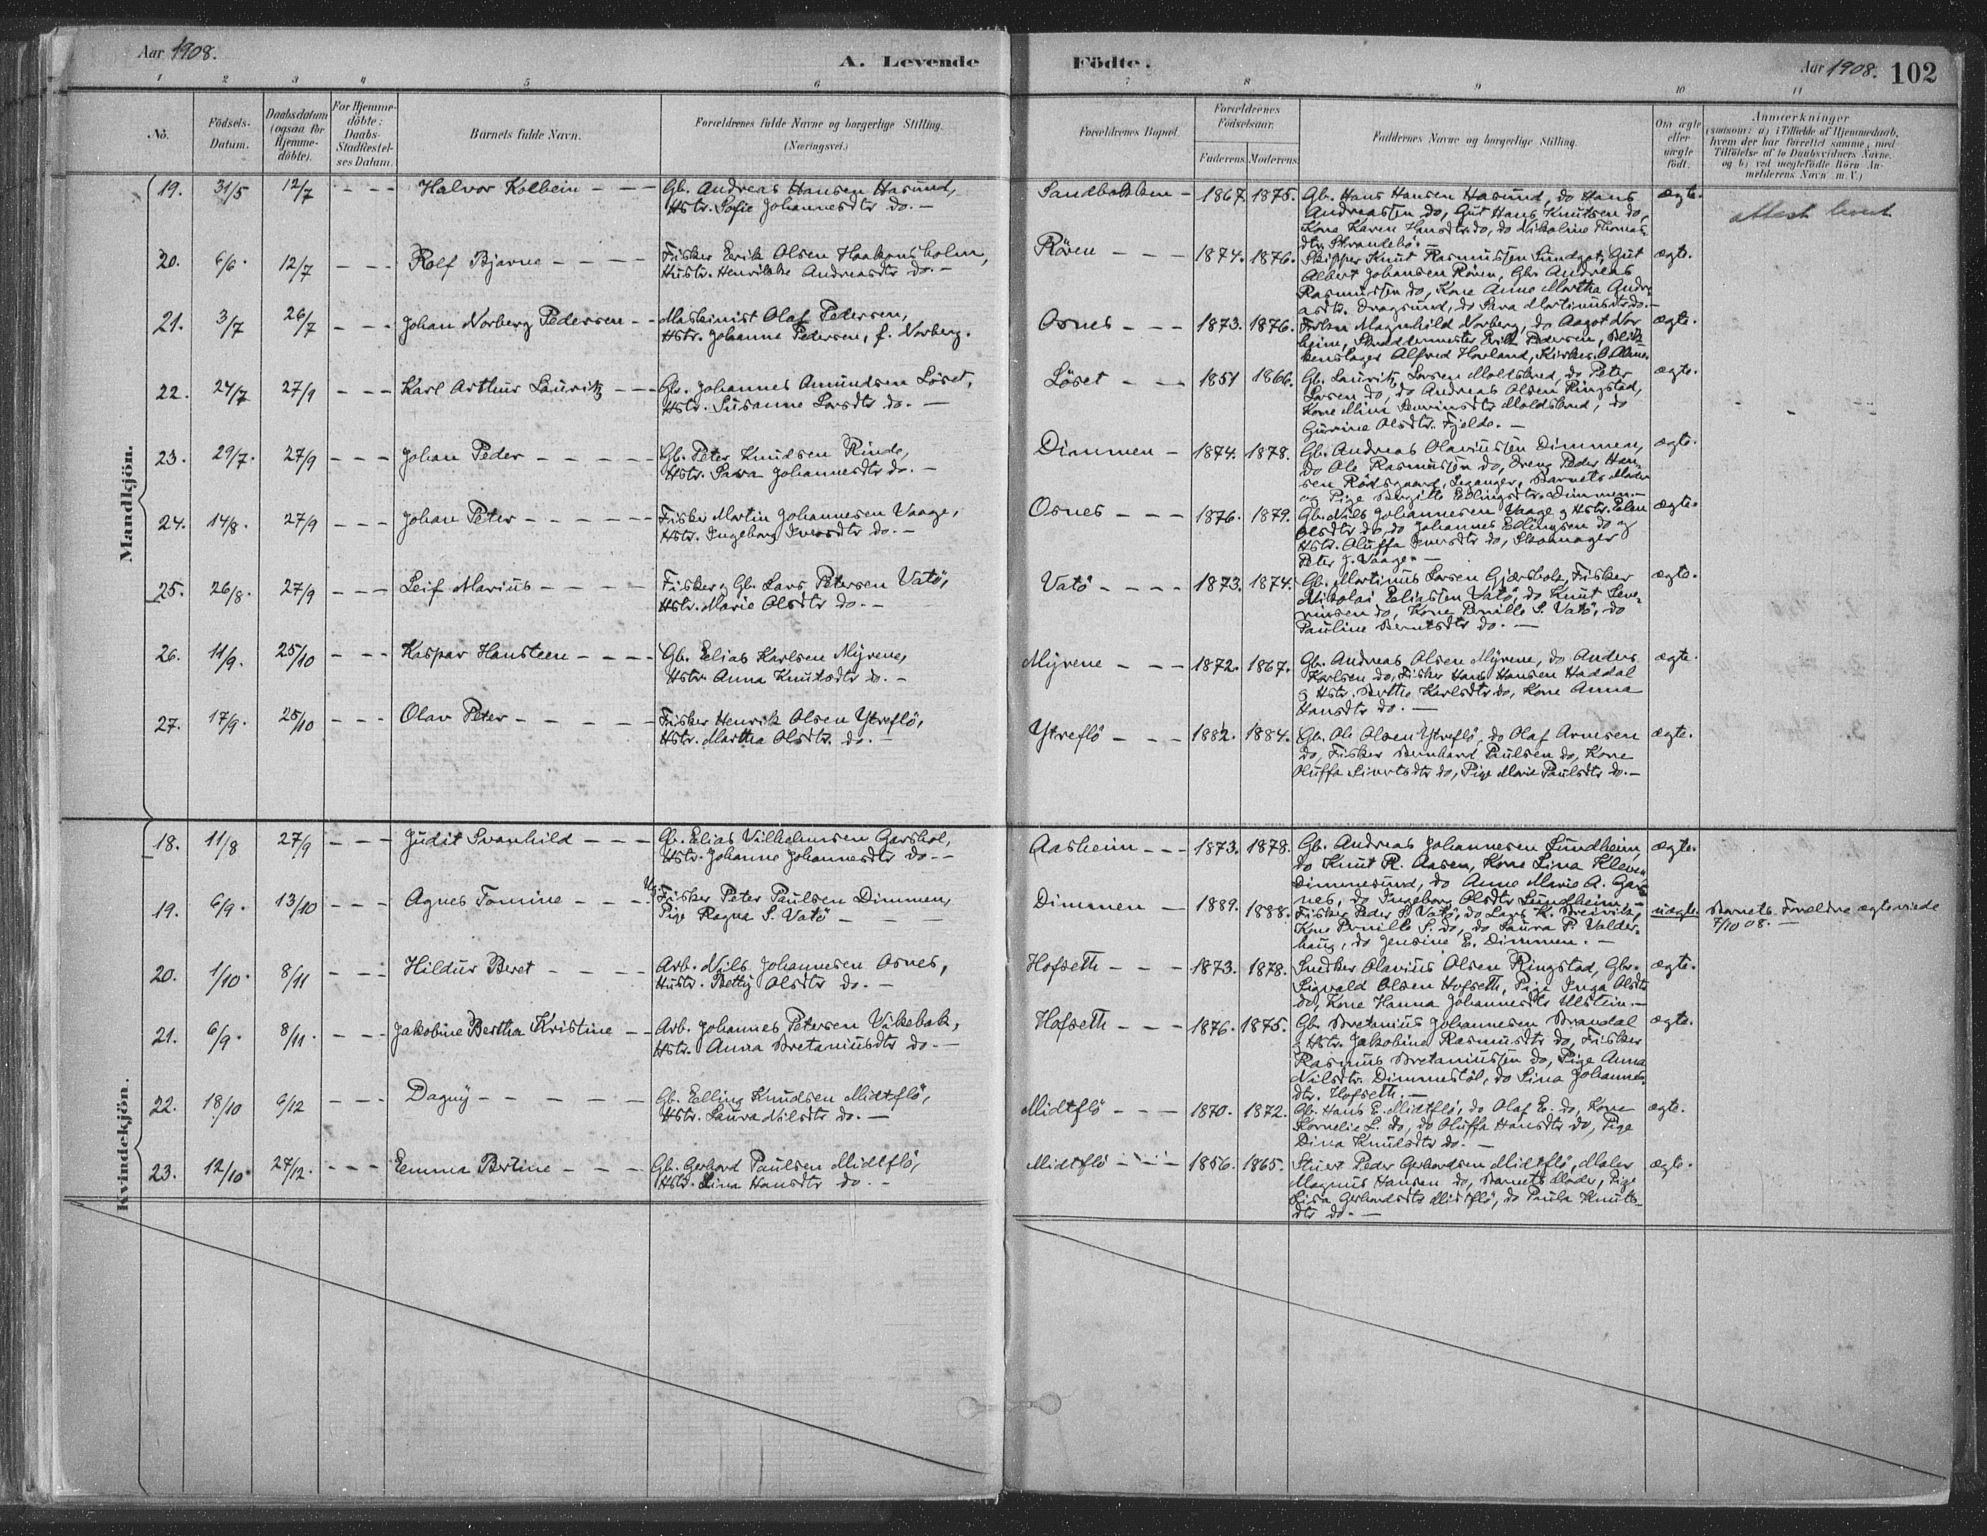 Aar 1908.
A. Levende
Födte.
Aar 1908. 102
1 2 3 4 5 6 7 8 9 10 11
No.
Födsels-
Datum.
Daabsdatum
(ogsaa for
Hjemme-
döbte).
For Hjemme-
döbte:
Daabs-
Stadfæstel-
ses Datum.
Barnets fulde Navn.
Forældrenes fulde Navne og borgerlige Stilling.
(Næringsvei.)
Forældrenes Bopæl.
Forældrenes
Födselsaar.
Faderens. Moderens.
Faddernes Navne og borgerlige Stilling.
Om ægte
eller
uægte
födt.
Anmærkninger
(saasom: a) i Tilfælde af Hjemmedaab,
hvem der har forrettet samme, med
Tilföielse af to Daabsvidners Navne,
og b) ved uægtefödte Börn An-
melderens Navn m. V.)
Mandkjön.
19. 31/5 12/7 - - - Halvor Kolbein - - - Gb. Andreas Hansen Hasund,
Hstr. Sofie Johannesdtr do. -
Sandbakken - 1867. 1875. Gb. Hans Hansen Hasund, do Hans
Andreassen do, Gut Hans Knutsen do,
Kone Karen Hansdtr do, do Nikoline Thomas
dtr. Strandebö.
ægte.
attest
20. 6/6. 12/7 - - - Rolf Bjarne - - - - Fisker Erik Olsen Haakonsholm,
Hustr. Henrikke Andreasdtr do. -
Rören - - - 1874. 1876. Skipper Knut Rasmussen Sundgot, Gut
Albert Johansen Rören, Gbr. Andreas
Rasmussen do, Kone Anne Martha Andre
asdtr. Dragsund, do Sara Martinusdtr do. -
ægte.
21. 3/7 26/7 - - - Johan Norberg Pedersen - - Maskinist Olaf Pedersen,
Hstr. Johanne Pedersen, f. Norberg.
Osnes - - - 1873. 1876. Magnhild Norberg, do Aagot Nor
heim, Skræddermester Erik Pedersen, Blik
kenslager Alfred Hovland,
ægte.
22. 24/7 27/9 - - - Karl Arthur Lauritz - - - Gb. Johannes Amundsen Löset,
Hstr. Susanne Larsdtr do. -
Löset - - - 1851 1866. Gb. Lauritz Larsen Moldskred, do Peter
Larsen do, do Andreas Olsen Ringstad,
Kone Mina Severinsdtr Moldskred, do
Gurine Olsdtr. Fjelde. -
ægte.
23. 29/7. 27/9 - - - Johan Peder - - - - - Gb. Peter Knudsen Rinde,
Hstr. Sara Johannesdtr do. -
Dimmen - 1874. 1878. Gb. Andreas Olaviussen Dimmen,
do Ole Rasmussen do, Dreng Peder Han-
sen Rödsgaard, Leganger, Barnets Moder
og Pige Birgitte Ellingsdtr. Dimmen. -
ægte.
24. 14/8. 27/9 - - - Johan Peter - - - - - - Fisker Martin Johannesen Vaage,
Hstr. Ingeborg Iversdtr do. -
Osnes - - - 1876. 1879. Gb. Nils Johannesen Vaage og Hstr. Elen
Olsdtr do, do Johannes Ellingsen do og
Hstr. Oluffa Iversdtr do, Skomager
Peter J. Vaage. -
ægte.
25. 26/8. 27/9 - - - Leif Marius - - - - - Fisker og Gb. Lars Petersen Vatö,
Hstr. Marie Olsdtr do. -
Vatö - - - - 1873. 1874. Gb. Martinus Larsen Gjærshole, Fisker
Nikolai Eliassen Vatö, do Knut Seve-
rinsen do, Kone Pernille S. Vatö, do
Pauline Berntsdtr do. -
ægte.
26. 11/9. 25/10 - - - Kaspar Hansteen - - - - Gb. Elias Karlsen Myrene,
Hstr. Anna Knutsdtr do. -
Myrene - - - 1872. 1867. Gb. Andreas Olsen Myrene, do Anders
Karlsen do, Fisker Hans Hansen Haddal
og Hstr. Berthe Karlsdtr do, Kone Anna
Hansdtr do. -
ægte.
27. 17/9. 25/10 - - - Olav Peter - - - - - Fisker Henrik Olsen Ytreflö,
Hstr. Martha Olsdtr. do. -
Ytreflö - - - 1882. 1884. Gb. Ole Olsen Ytreflö, do Olaf Arnesen
do, Fisker Bernhard Paulsen do, Kone
Oluffa Sivertsdtr do, Pige Marie Paulsdtr do. -
ægte.
Kvindekjön.
18. 11/8 27/9 - - - Judit Svanhild - - - Gb. Elias Vilhelmsen Garshol,
Hstr. Johanne Johannesdtr do - -
Aasheim - - - 1873. 1878. Gb. Andreas Johannesen Sundheim,
do Knut R. Aasen, Kone Lina Kleven
Dimmesund, do Anne Marie A. Gars
nes, do Ingeborg Olsdtr Sundheim. -
ægte.
19. 6/9. 13/10 - - - Agnes Tomine - - - Ug. Fisker Peter Paulsen Dimmen,
Pige Ragna S. Vatö - - -
Dimmen - - 1889. 1888. Fisker Peder S. Vatö, do Lars K. Breivik,
Kone Pernille S. do, do Laura P. Valder-
haug, do Jensine E. Dimmen. -
uægte. Barnets Forældre ægteviede
7/10 08. -
20. 1/10. 8/11 - - - Hildur Beret - - - - Arb. Nils Johannesen Osnes,
Hustr. Betty Olsdtr do. -
Hofseth - - - 1873. 1878. Snedker Olavius Olsen Ringstad, Gbr.
Sigvald Olsen Hofseth, Pige Inga Olsdtr
do, Kone Hanna Johannesdtr Ulstein. -
ægte.
21. 6/9. 8/11. - - - Jakobine Bertha Kristine - - Arb. Johannes Petersen Vikebak,
Hstr. Anna Bretaniusdtr do. -
Hofseth - - - 1876. 1875. Gb. Bretanius Johannesen Brandal
og Hstr. Jakobine Rasmusdtr do, Fisker
Rasmus Bretaniussen do, Pige Anna
Nilsdtr. Dimmestöl, do Lina Johannes-
dtr. Hofseth. -
ægte.
22. 18/10 6/12 - - - Dagny - - - - - Gb. Elling Knudsen Midtflö,
Hstr. Laura Nilsdtr do. -
Midtflö - - - 1870. 1872. Gb. Hans E. Midtflö, do Olaf E. do, Kone
Kornelie L. do, do Oluffa Hansdtr do, Pige
Dina Knudsdtr do. -
ægte.
23. 12/10. 27/12. - - - Emma Bertine - - - Gb. Gerhard Paulsen Midtflö,
Hstr. Lina Hansdtr do. -
Midtflö - - - 1856. 1865. Stuert Peder Gerhardsen Midtflö, Maler
Magnus Hansen do, Barnets Moder, Pige
Lisa Gerhardsdtr Midtflö, do Paula Knuts-
dtr do. -
ægte.